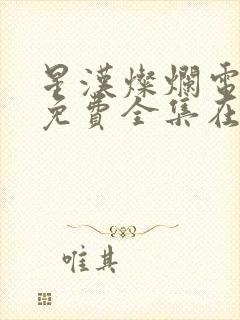 星漢燦爛電
免費全集在
唯其